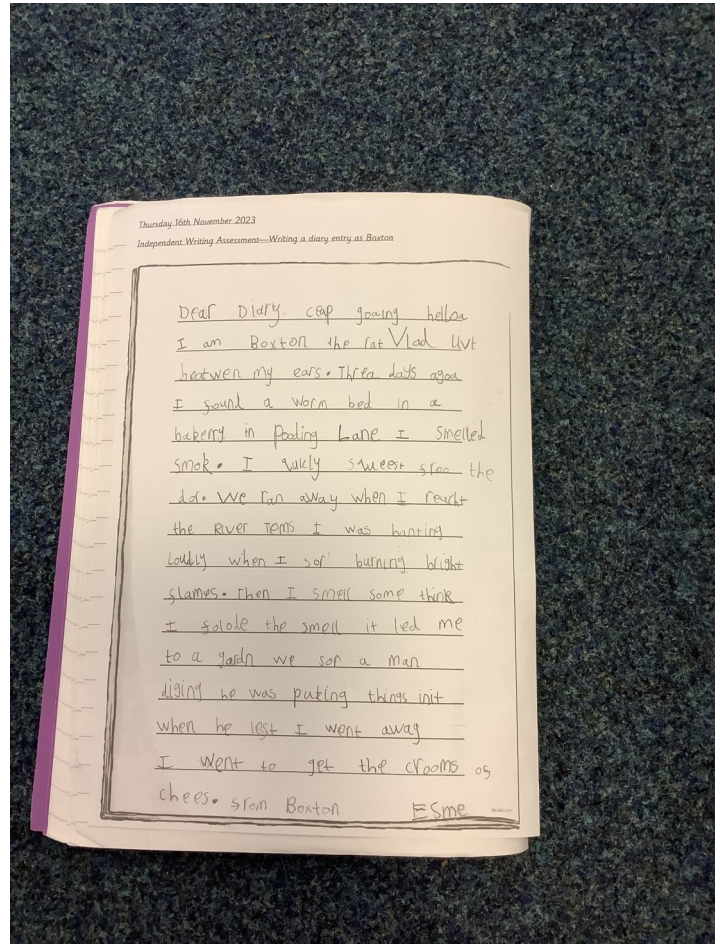 Thursday 16th November 2023
Independent Writing Assessment—Writing a diary entry as Boxton
Dear Diary. ceap goaing helloa
I am Boxton the rat Vlad livt
beatwen my ears. Threa days agoa
I found a worm bed in a
bakerry in Pooding Lane I smelled
smok. I quicly sqweest froo the
dor. We ran away when I reacht
the River Tems I was hanting
Loudly when I sor burning bright
flames. Then I smell some think
I folode the smell it led me
to a gardn we sor a man
diging he was puting things init
when he left I went away
I went to get the crooms of
chees. from Boxton Esme